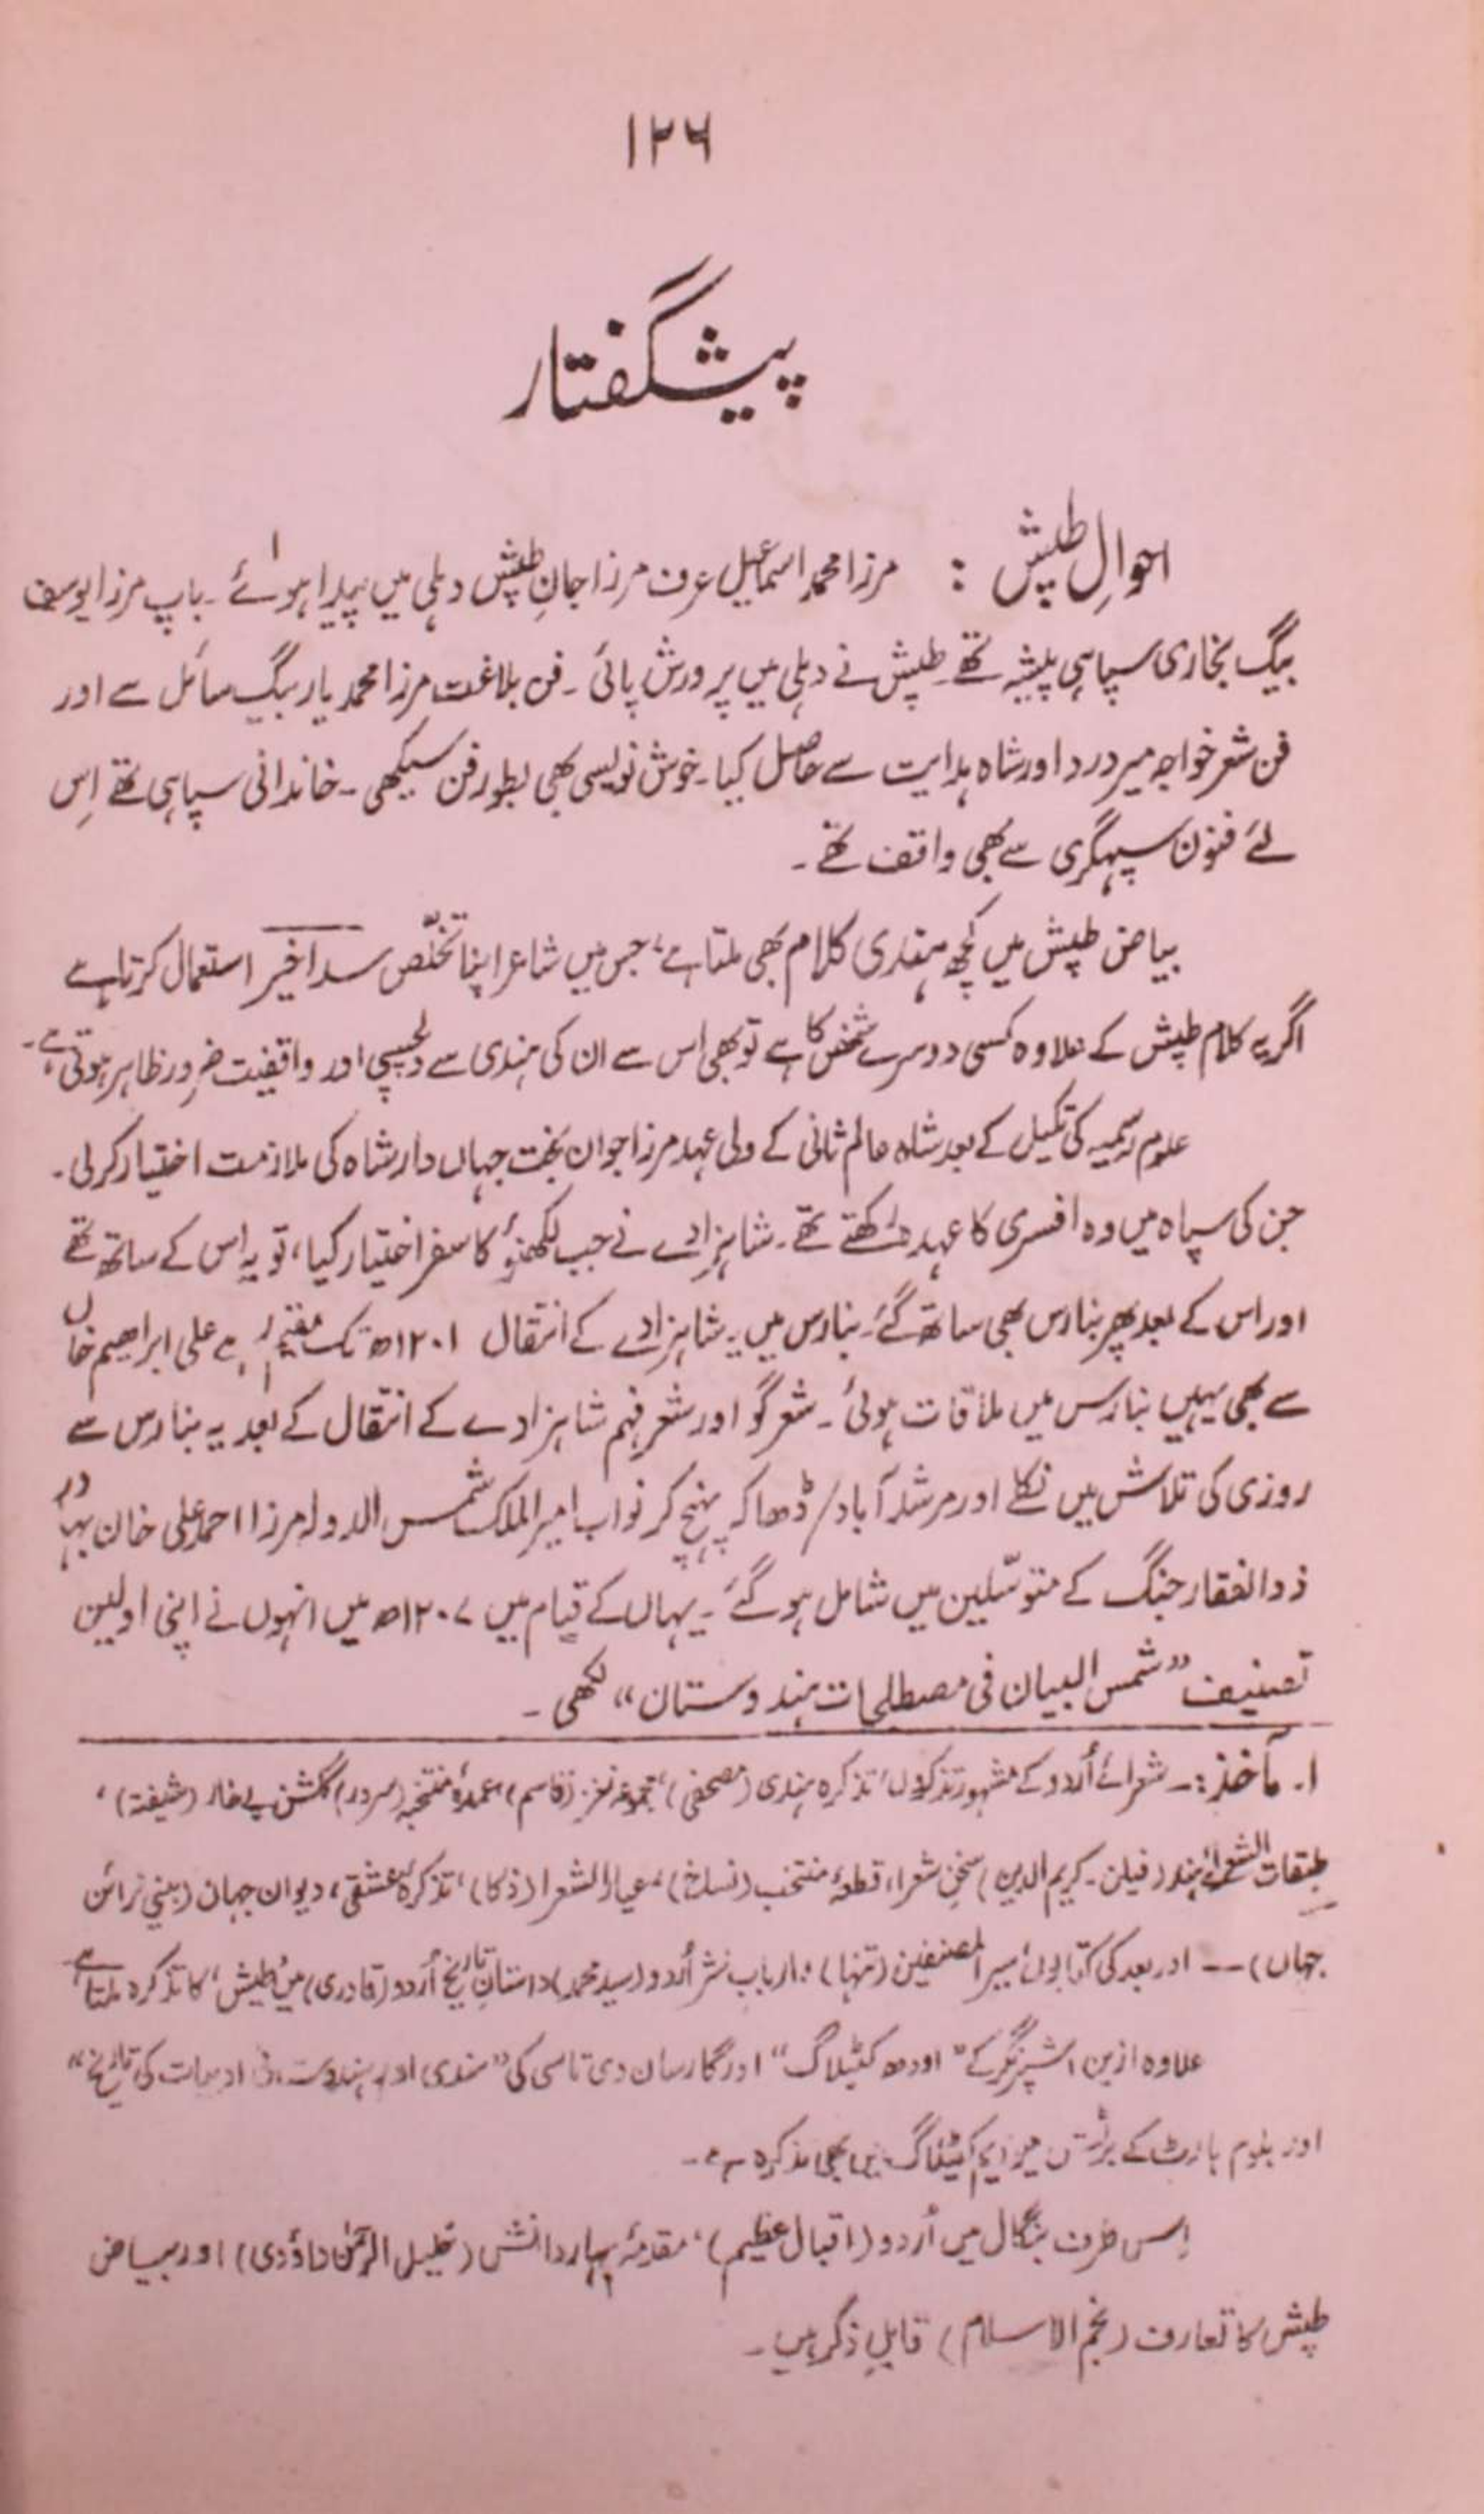 ۱۲۶
پیشگفتار
احوالِ طپش : مرزا محمد اسماعیل عرف مرزا جان طپش دہلی میں پیدا ہوئے ۱۔ باپ مرزا یوسف
بیگ بخاری سپاہی پیشہ تھے۔ طپش نے دہلی میں پرورش پائی۔ فن بلاغت مرزا محمد یار بیگ سائل سے اور
فن شعر خواجہ میر درد اور شاہ ہدایت سے حاصل کیا۔ خوش نویسی بھی بطور فن سیکھی۔ خاندانی سپاہی تھے اِس
لئے فنونِ سپہگری سے بھی واقف تھے۔
بیاض طپش میں کچھ ہندی کلام بھی ملتا ہے، جس میں شاعر اپنا تخلّص سدا خیر استعمال کرتا ہے
اگر یہ کلام طپش کے علاوہ کسی دوسرے شخص کا ہے تو بھی اس سے ان کی ہندی سے دلچسپی اور واقفیت ضرور ظاہر ہوتی ہے۔
علوم رسمیہ کی تکمیل کے بعد شاہ عالم ثانی کے ولی عہد مرزا جوان بخت جہاں دار شاہ کی ملازمت اختیار کر لی۔
جن کی سپاہ میں وہ افسری کا عہدہ رکھتے تھے۔ شاہزادے نے جب لکھنؤ کا سفر اختیار کیا، تو یہ اس کے ساتھ تھے
اور اس کے بعد پھر بنارس بھی ساتھ گئے۔ بنارس میں یہ شاہزادے کے انتقال ۱۲۰۱ھ تک مقیم رہے علی ابراھیم خاں
سے بھی یہیں بنارس میں ملاقات ہوئی۔ شعر گو اور شعر فہم شاہزادے کے انتقال کے بعد یہ بنارس سے
روزی کی تلاش میں نکلے اور مرشد آباد/ڈھاکہ پہنچ کر نواب امیر الملک شمس الدولہ مرزا احمد علی خان بہادر
ذوالفقار جنگ کے متوسّلین میں شامل ہو گئے۔ یہاں کے قیام میں ۱۲۰۷ھ میں انہوں نے اپنی اولین
تصنیف ”شمس البیان فی مصطلحات ہندوستان“ لکھی۔
۱۔ مآخذ:۔ شعرائے اُردو کے مشہور تذکروں، تذکرہ ہندی (مصحفی)، مجموعہ نغز (قاسم)، عمدۂ منتخبہ (سرور) گلشن بے خار (شیفتہ)،
طبقات الشعرائے ہند (فیلن۔ کریم الدین) سخن شعرا، قطعۂ منتخب (نساخ)، عیار الشعرا (ذکا)، تذکرۂ عشقی، دیوان جہان (بینی نرائن
جہاں) —— اور بعد کی کتابوں، سیر المصنفین (تنہا)، ارباب نثر اُردو (سید محمد) داستان تاریخ اُردو (قادری) میں طپش، کا تذکرہ ملتا ہے
علاوہ ازیں اشپرنگر کے ”اودھ کٹیلاگ“ اور گارساں دی تاسی کی ”ہندی اور ہندوستانی ادبیات کی تاریخ“
اور بلوم ہارٹ کے برٹش میوزیم کیٹلاگ میں بھی تذکرہ ہے۔
اِس طرف بنگال میں اُردو (اقبال عظیم)، مقدمۂ بہار دانش (خلیل الرحمٰن داؤدی) اور بیاض
طپش کا تعارف (نجم الاسلام) قابلِ ذکر ہیں۔